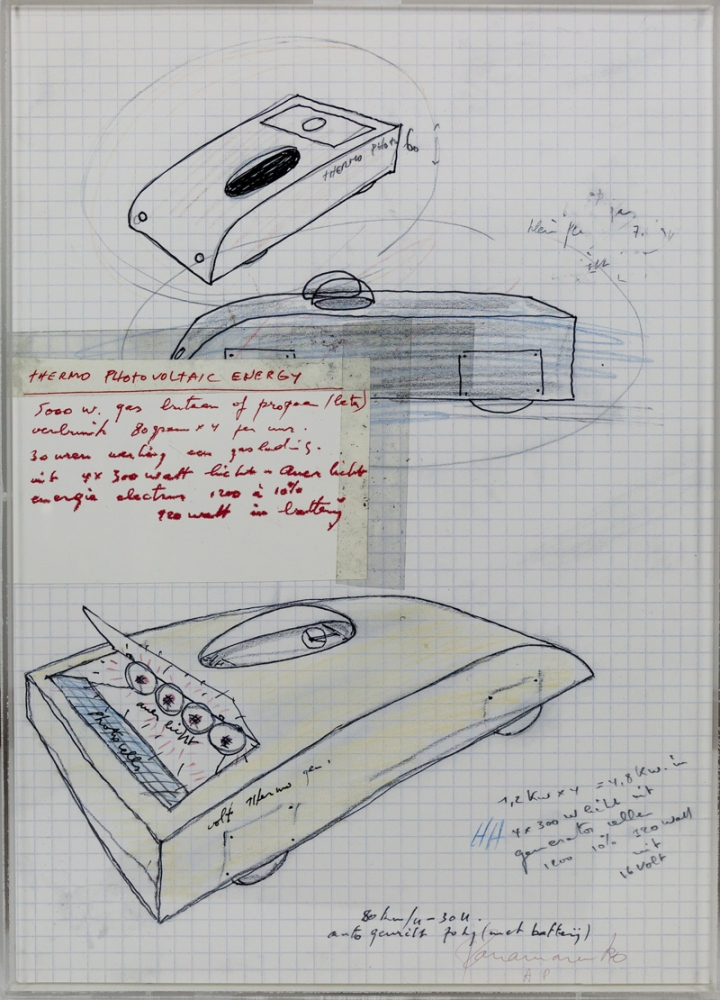 THERMO PHOTO
60
THERMO PHOTOVOLTAIC ENERGY
5000 w. gas butaan of propaan
verbruik 80 gram x 4 per uur.
30 uren werking een gaslading.
uit 4x 300 watt licht = Auer licht
energie electrum 1200 à 10%
120 watt in batterij
auer licht
Photo cells
volt Thermo gen.
1,2 Kw x 4 = 4,8 Kw. in
4x 300 w licht uit
generator cellen
1200 10% 320 watt
uit
16 volt
80 km/u - 30 u.
auto gewicht 70 kg (met batterij)
Panamarenko
A P